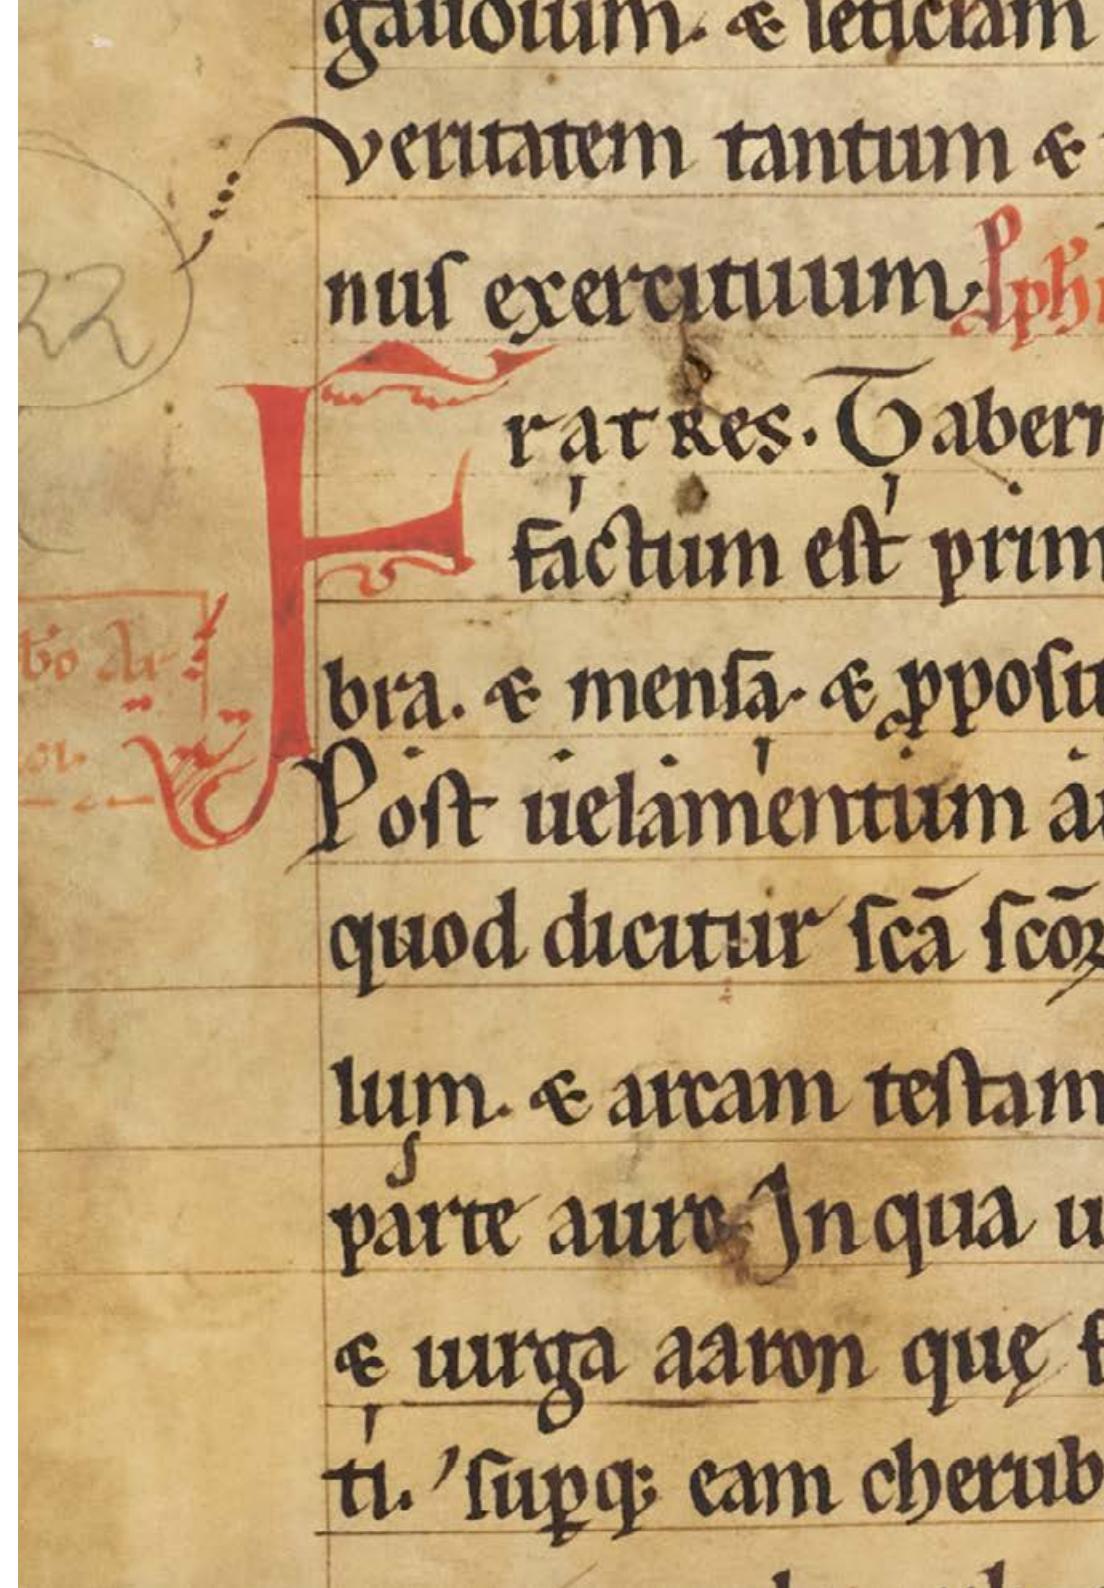 gaudium. & leticiam
veritatem tantum &
nus exercituum.
22
FratRes. Tabern
factum est prim
bra. & mensa. & ꝓposit
Post uelamentum a
quod dicitur scā scōꝝ
lum. & arcam testam
parte auro In qua u
& uirga aaron quę f
ti. supꝑq; eam cherub